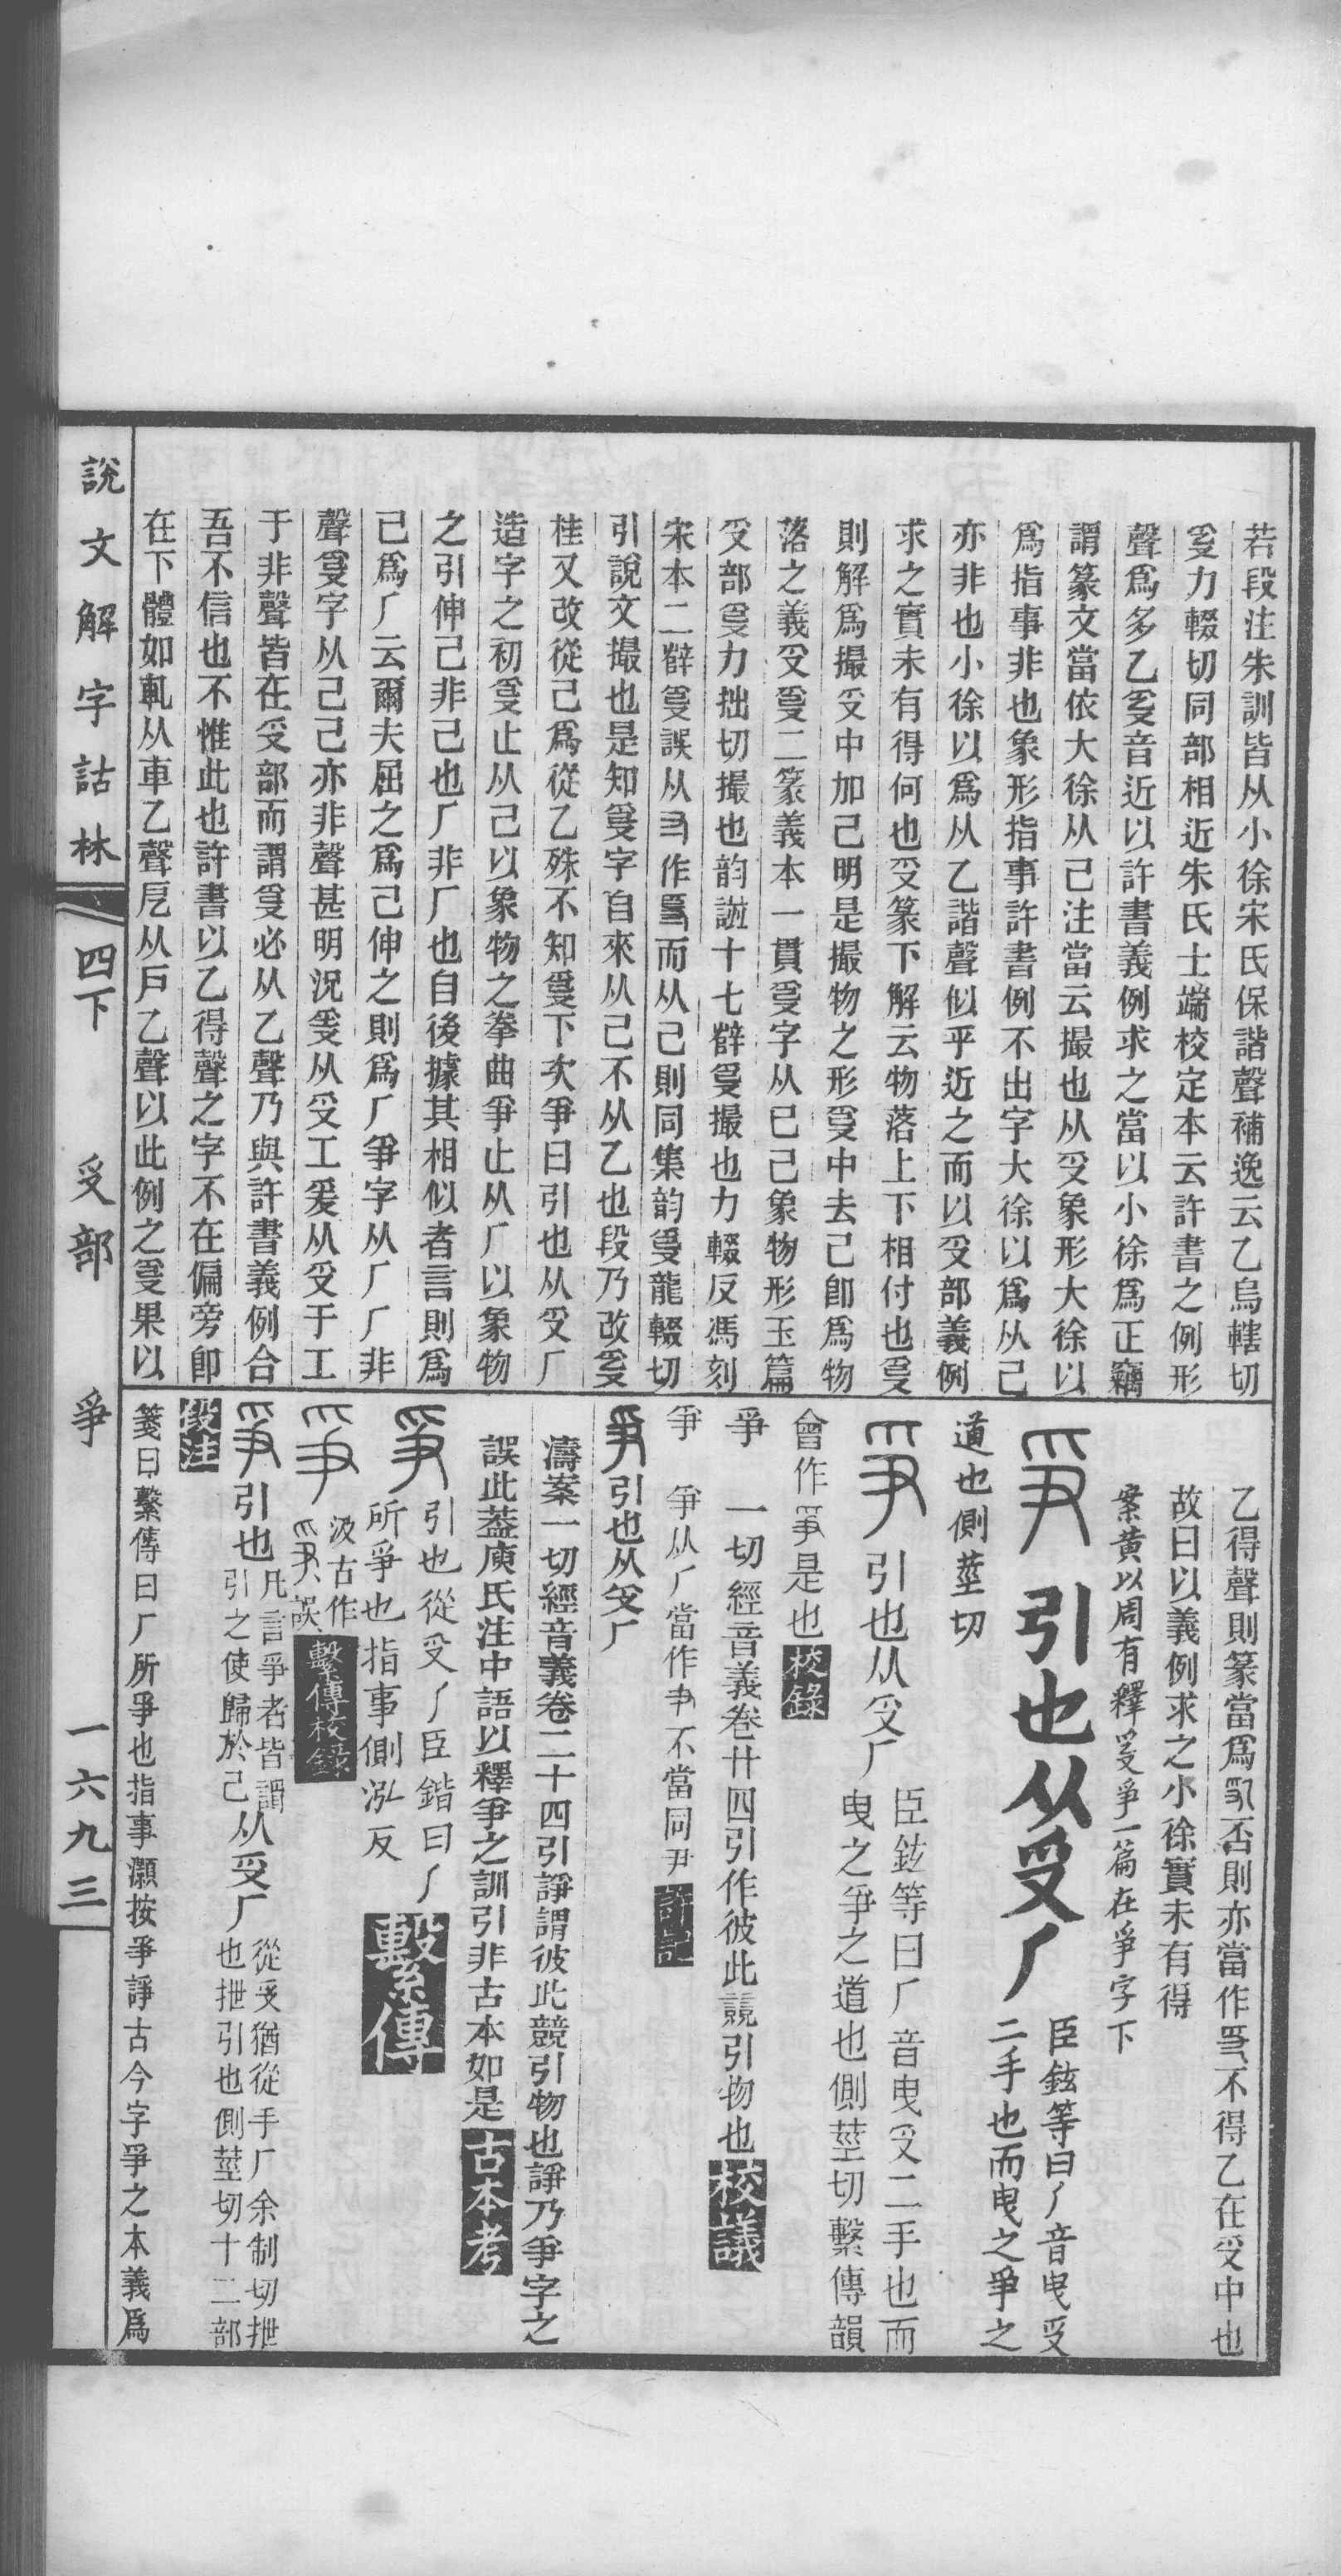 若段注朱訓皆从小徐宋氏保諧聲補逸云乙烏轄切
𤔔力輟切同部相近朱氏士端校定本云許書之例形
聲爲多乙音近以許書義例求之當以小徐爲正竊
謂篆文當依大徐从己注當云撮也从𠬪象形大徐以
爲指事非也象形指事許書例不出字大徐以爲从己
亦非也小徐以爲从乙諧聲似乎近之而以𠬪部義例
求之實未有得何也𠬪篆下解云物落上下相付也
則解爲撮𠬪中加己明是撮物之形中去己卽爲物
落之義𠬪二篆義本一貫字从己己象物形玉篇
𠬪部力拙切撮也韵十七撮也力輟反馮刻
宋本二誤从作而从己則同集韵龍輟切
引說文撮也是知字自來从己不从乙也段乃改
桂又改從己爲從乙殊不知下次爭曰引也从𠬪𠂆
造字之初止从己以象物之拳曲爭止从𠂆以象物
之引伸己非己也𠂆非𠂆也自後據其相似者言則爲
己爲𠂆云爾夫屈之爲己伸之則爲𠂆爭字从𠂆𠂆非
聲字从己己亦非聲甚明況爰从𠬪工爰从𠬪于工
于非聲皆在𠬪部而謂必从乙聲乃與許書義例合
吾不信也不惟此也許書以乙得聲之字不在偏旁卽
在下體如軋从車乙聲戹从戶乙聲以此例之果以
乙得聲則篆當爲否則亦當作不得乙在𠬪中也
故曰以義例求之小徐實未有得
案黃以周有釋爭一篇在爭字下
爭 引也从𠬪𠂆 臣鉉等曰𠂆音曳𠬪
二手也而曳之爭之
道也側莖切
爭 引也从𠬪𠂆 臣鉉等曰𠂆音曳𠬪二手也而
曳之爭之道也側莖切繫傳韻
會作爭是也 校錄
爭 一切經音義卷廿四引作彼此競引物也 校議
爭 爭从𠂆當作不當同尹 許記
爭 引也从𠬪𠂆
濤案一切經音義卷二十四引諍謂彼此競引物也諍乃爭字之
誤此葢庾氏注中語以釋爭之訓引非古本如是 古本考
爭 引也從𠬪𠂆臣鍇曰𠂆
所爭也指事側泓反 繫傳
爭 汲古作
爭誤 繫傳校錄
爭 引也 凡言爭者皆謂
引之使歸於己 从𠬪𠂆 從𠬪猶從手𠂆余制切抴
也抴引也側莖切十二部
段注
箋曰繫傳曰𠂆所爭也指事灝按爭諍古今字爭之本義爲
說文解字詁林 四下 𠬪部 爭 一六九三